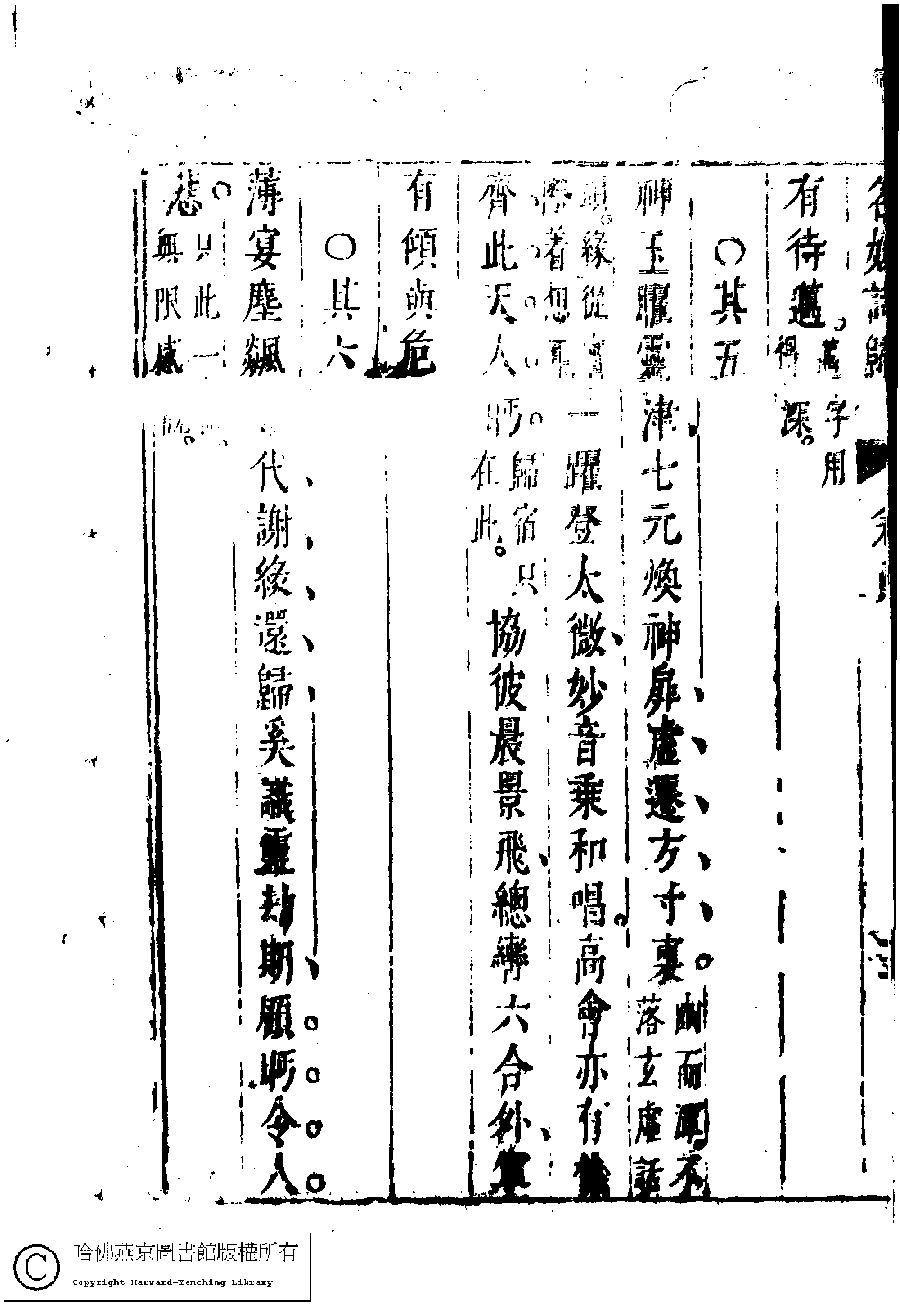 名媛詩歸
有待邁蓋字用得深
○其五
神玉曜靈津七元煥神扉虛遷方寸裏幽而渾不落玄虛話
頭緣從實際着想耳一躍登太微妙音乘和唱高會亦有
齊此天人眄歸宿只在此協彼晨景飛總轡六合外寧
有傾與危
○其六
薄宴塵飆代謝緣還歸奚識靈劫期顧眄令人
悲只此一無限感
哈佛燕京圖書館版權所有
Copyright Harvard-Yenching Library